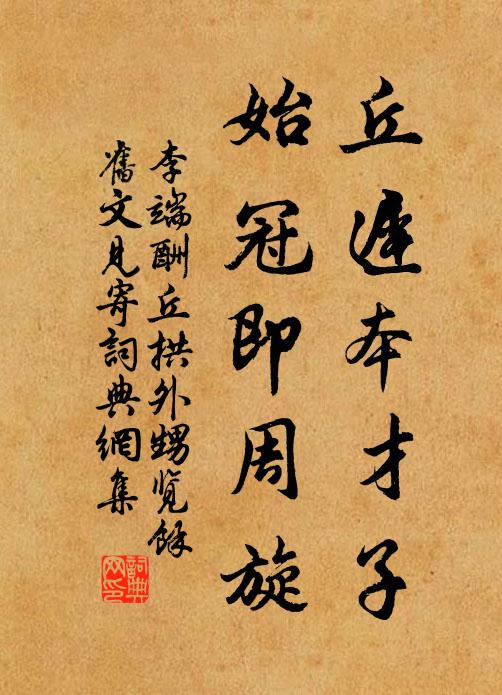 丘遲本才子
始冠即周旋
李端酬丘拱外甥覽餘
舊文見寄詞典網集
詞典网印